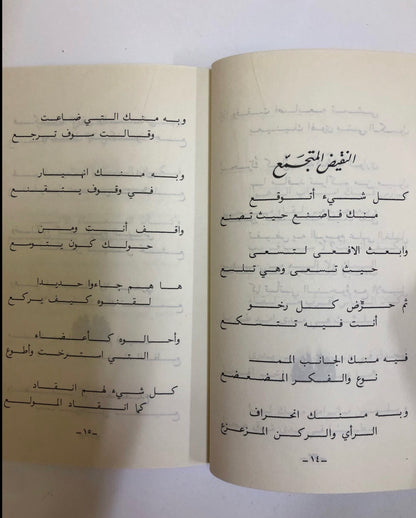 النقيض المتجمّع
كل شيء أتوقع
منك فاصنع حيث تصنع
وابعث الافعى لتسعى
حيث تسعى وهي تلسع
ثم حرّض كل رخو
أنت فيه تتسكع
فيه منك الجانب المم‍
نوع والفكر المضعضع
وبه منك انحراف
الرأي والركن المزعزع
-١٤-
وبه منك التي ضاعت
وقالت سوف ترجع
وبه منك انهيار
في وقوف يتقنع
واقف أنت ومن
حولك كون يتوسع
ها هم جاءوا حديدا
لقنوه كيف يركع
وأحالوه كأعضاء
التي استرخت وأطوع
كل شيء لهم انقاد
كما انقاد المولع
-١٥-